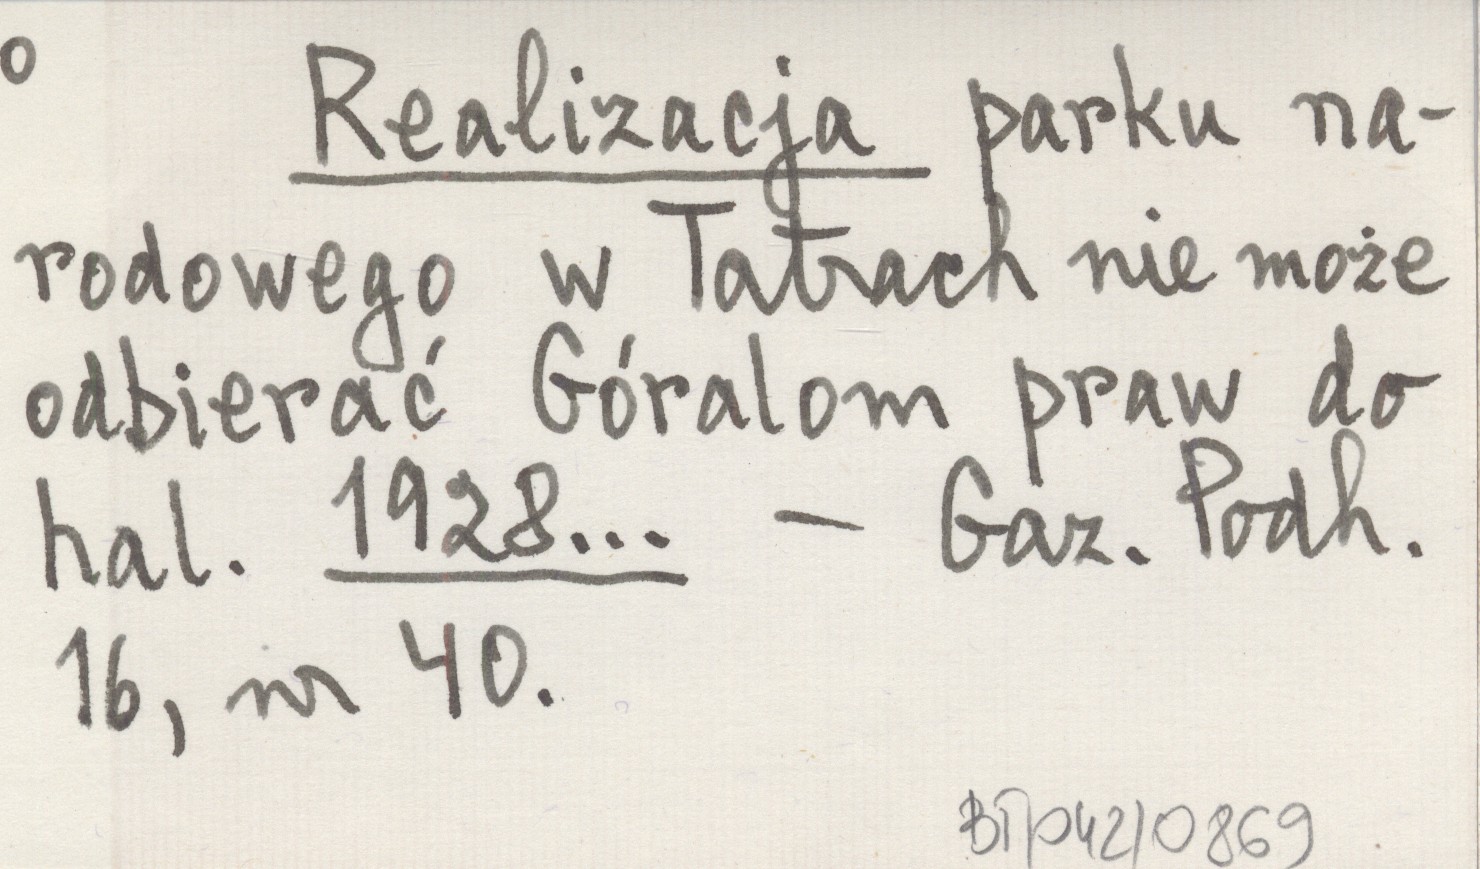 o
Realizacja parku na-
rodowego w Tatrach nie może
odbierać Góralom praw do
hal. 1928... — Gaz. Podh.
16, nr 40.
BTP042/0869